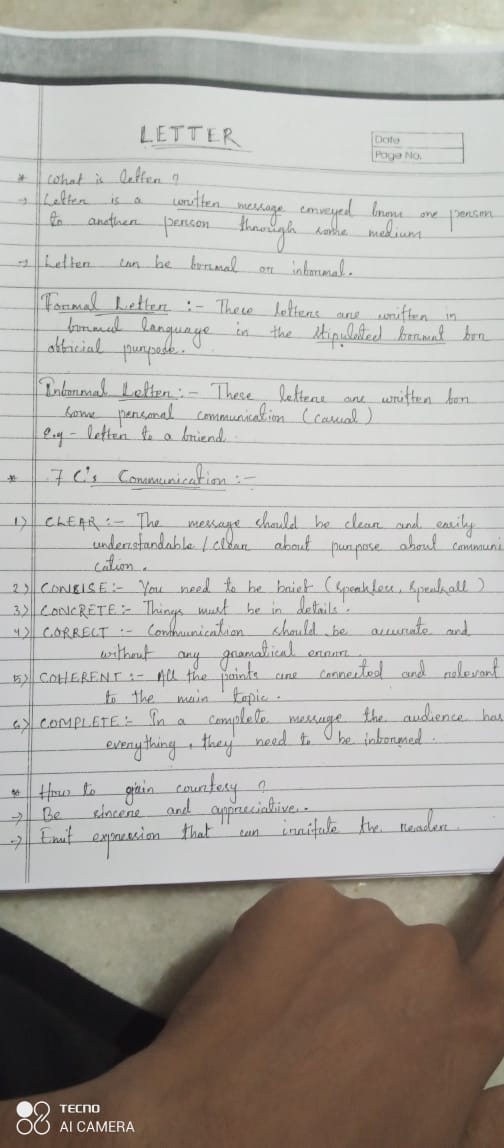 LETTER
Date
Page No.
* What is letter ?
→ Letter is a written message conveyed from one person
to another person through some medium
→ Letter can be formal or informal.
Formal Letter :- These letters are written in
formal language in the stipulated format for
official purpode.
Informal Letter :- These letters are written for
some personal communication (casual)
e.g - letter to a friend.
* 7 C's Communication :-
1) CLEAR :- The message should be clear and easily
understandable / clear about purpose about communi
cation.
2) CONCISE :- You need to be brief (speakless, speakall)
3) CONCRETE :- Things must be in details.
4) CORRECT :- Communication should be accurate and
without any gramatical error.
5) COHERENT :- All the points are connected and relevant
to the main topic.
6) COMPLETE :- In a complete message the audience has
everything, they need to be informed.
* How to gain courtesy ?
→ Be sincere and appreciative.
→ Emit expression that can irritate the reader.
TECNO
AI CAMERA